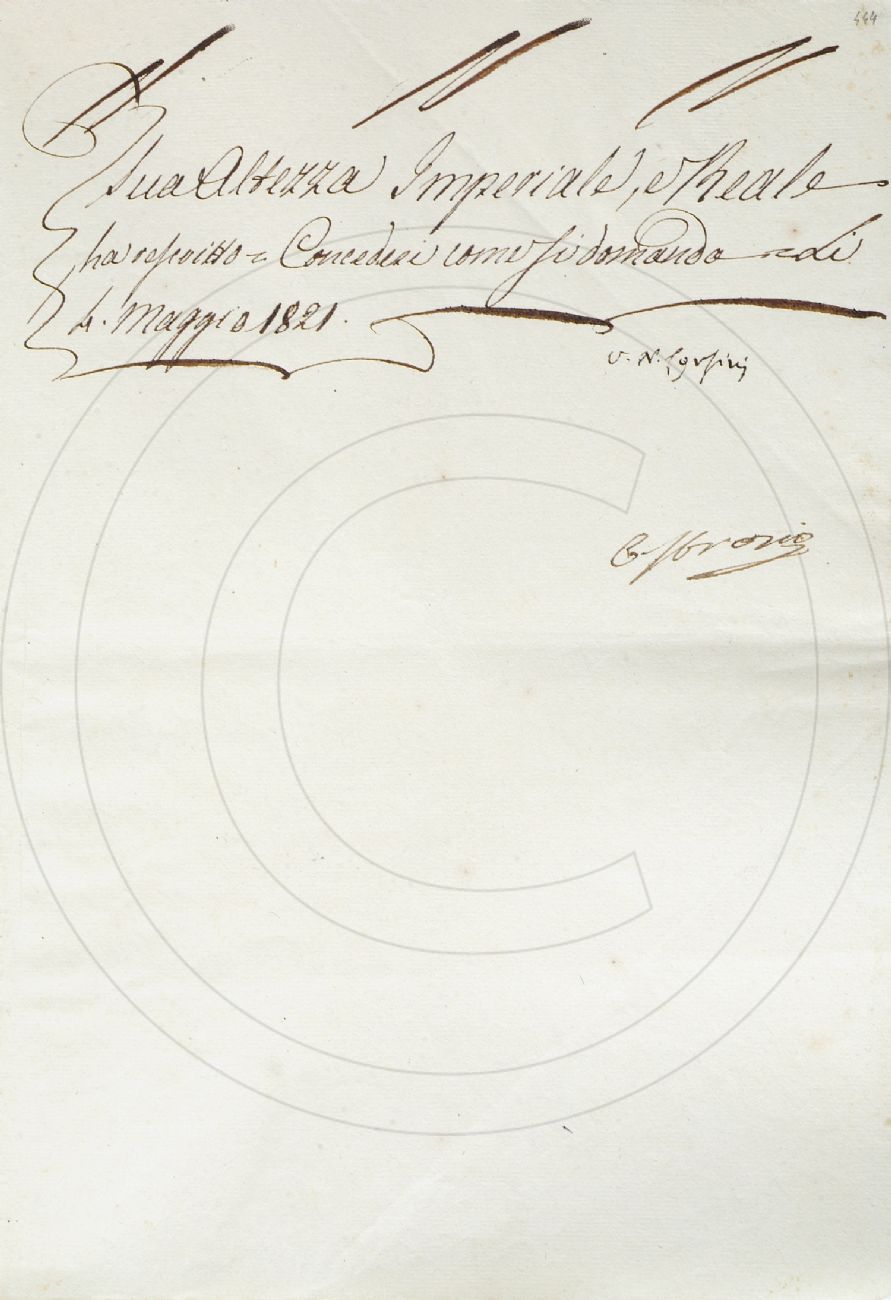 444
Sua Altezza Imperiale, e Reale
ha rescritto = Concedesi come si domanda = Li
4. Maggio 1821.
V. N. Corsini